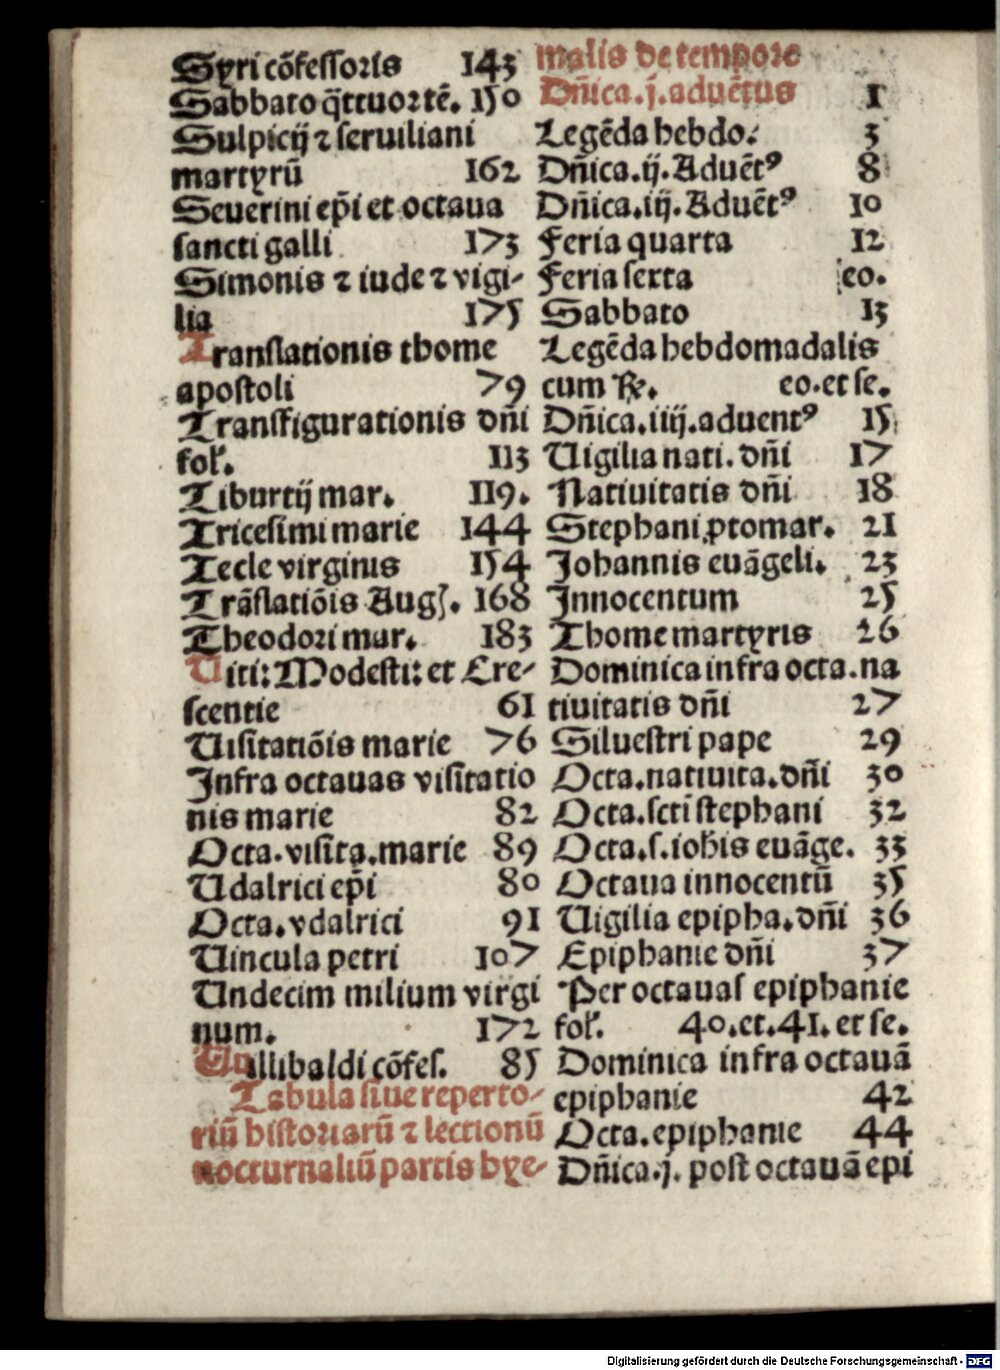 Syri cõfessoris 143
Sabbato q̃ttuortẽ. 150
Sulpicij ⁊ seruiliani
martyrũ 162
Seuerini ep̃i et octaua
sancti galli 173
Simonis ⁊ iude ⁊ vigi-
lia 175
Translationis thome
apostoli 79
Transfigurationis dñi
fol. 113
Tiburtij mar. 119.
Tricesimi marie 144
Tecle virginis 154
Trãslatiõis Aug. 168
Theodori mar. 183
Uiti: Modesti: et Cre-
scentie 61
Uisitatiõis marie 76
Infra octauas visitatio
nis marie 82
Octa. visita. marie 89
Udalrici ep̃i 80
Octa. vdalrici 91
Uincula petri 107
Undecim milium virgi
num. 172
Willibaldi cõfes. 85
Tabula siue reperto-
riũ historiarũ ⁊ lectionũ
nocturnaliũ partis hye-
malis de tempore
Dñica. j. aduẽtus 1
Legẽda hebdo: 3
Dñica. ij. Aduẽtꝰ 8
Dñica. iij. Aduẽtꝰ 10
Feria quarta 12
Feria sexta eo.
Sabbato 13
Legẽda hebdomadalis
cum ℞. eo. et se.
Dñica. iiij. aduentꝰ 15
Uigilia nati. dñi 17
Natiuitatis dñi 18
Stephani ꝓtomar. 21
Johannis euãgeli. 23
Innocentum 25
Thome martyris 26
Dominica infra octa. na
tiuitatis dñi 27
Siluestri pape 29
Octa. natiuita. dñi 30
Octa. scti stephani 32
Octa. s. ioh̃is euãge. 33
Octaua innocentũ 35
Uigilia epipha. dñi 36
Epiphanie dñi 37
Per octauas epiphanie
fol. 40. et. 41. et se.
Dominica infra octauã
epiphanie 42
Octa. epiphanie 44
Dñica. j. post octauã epi
Digitalisierung gefördert durch die Deutsche Forschungsgemeinschaft - DFG